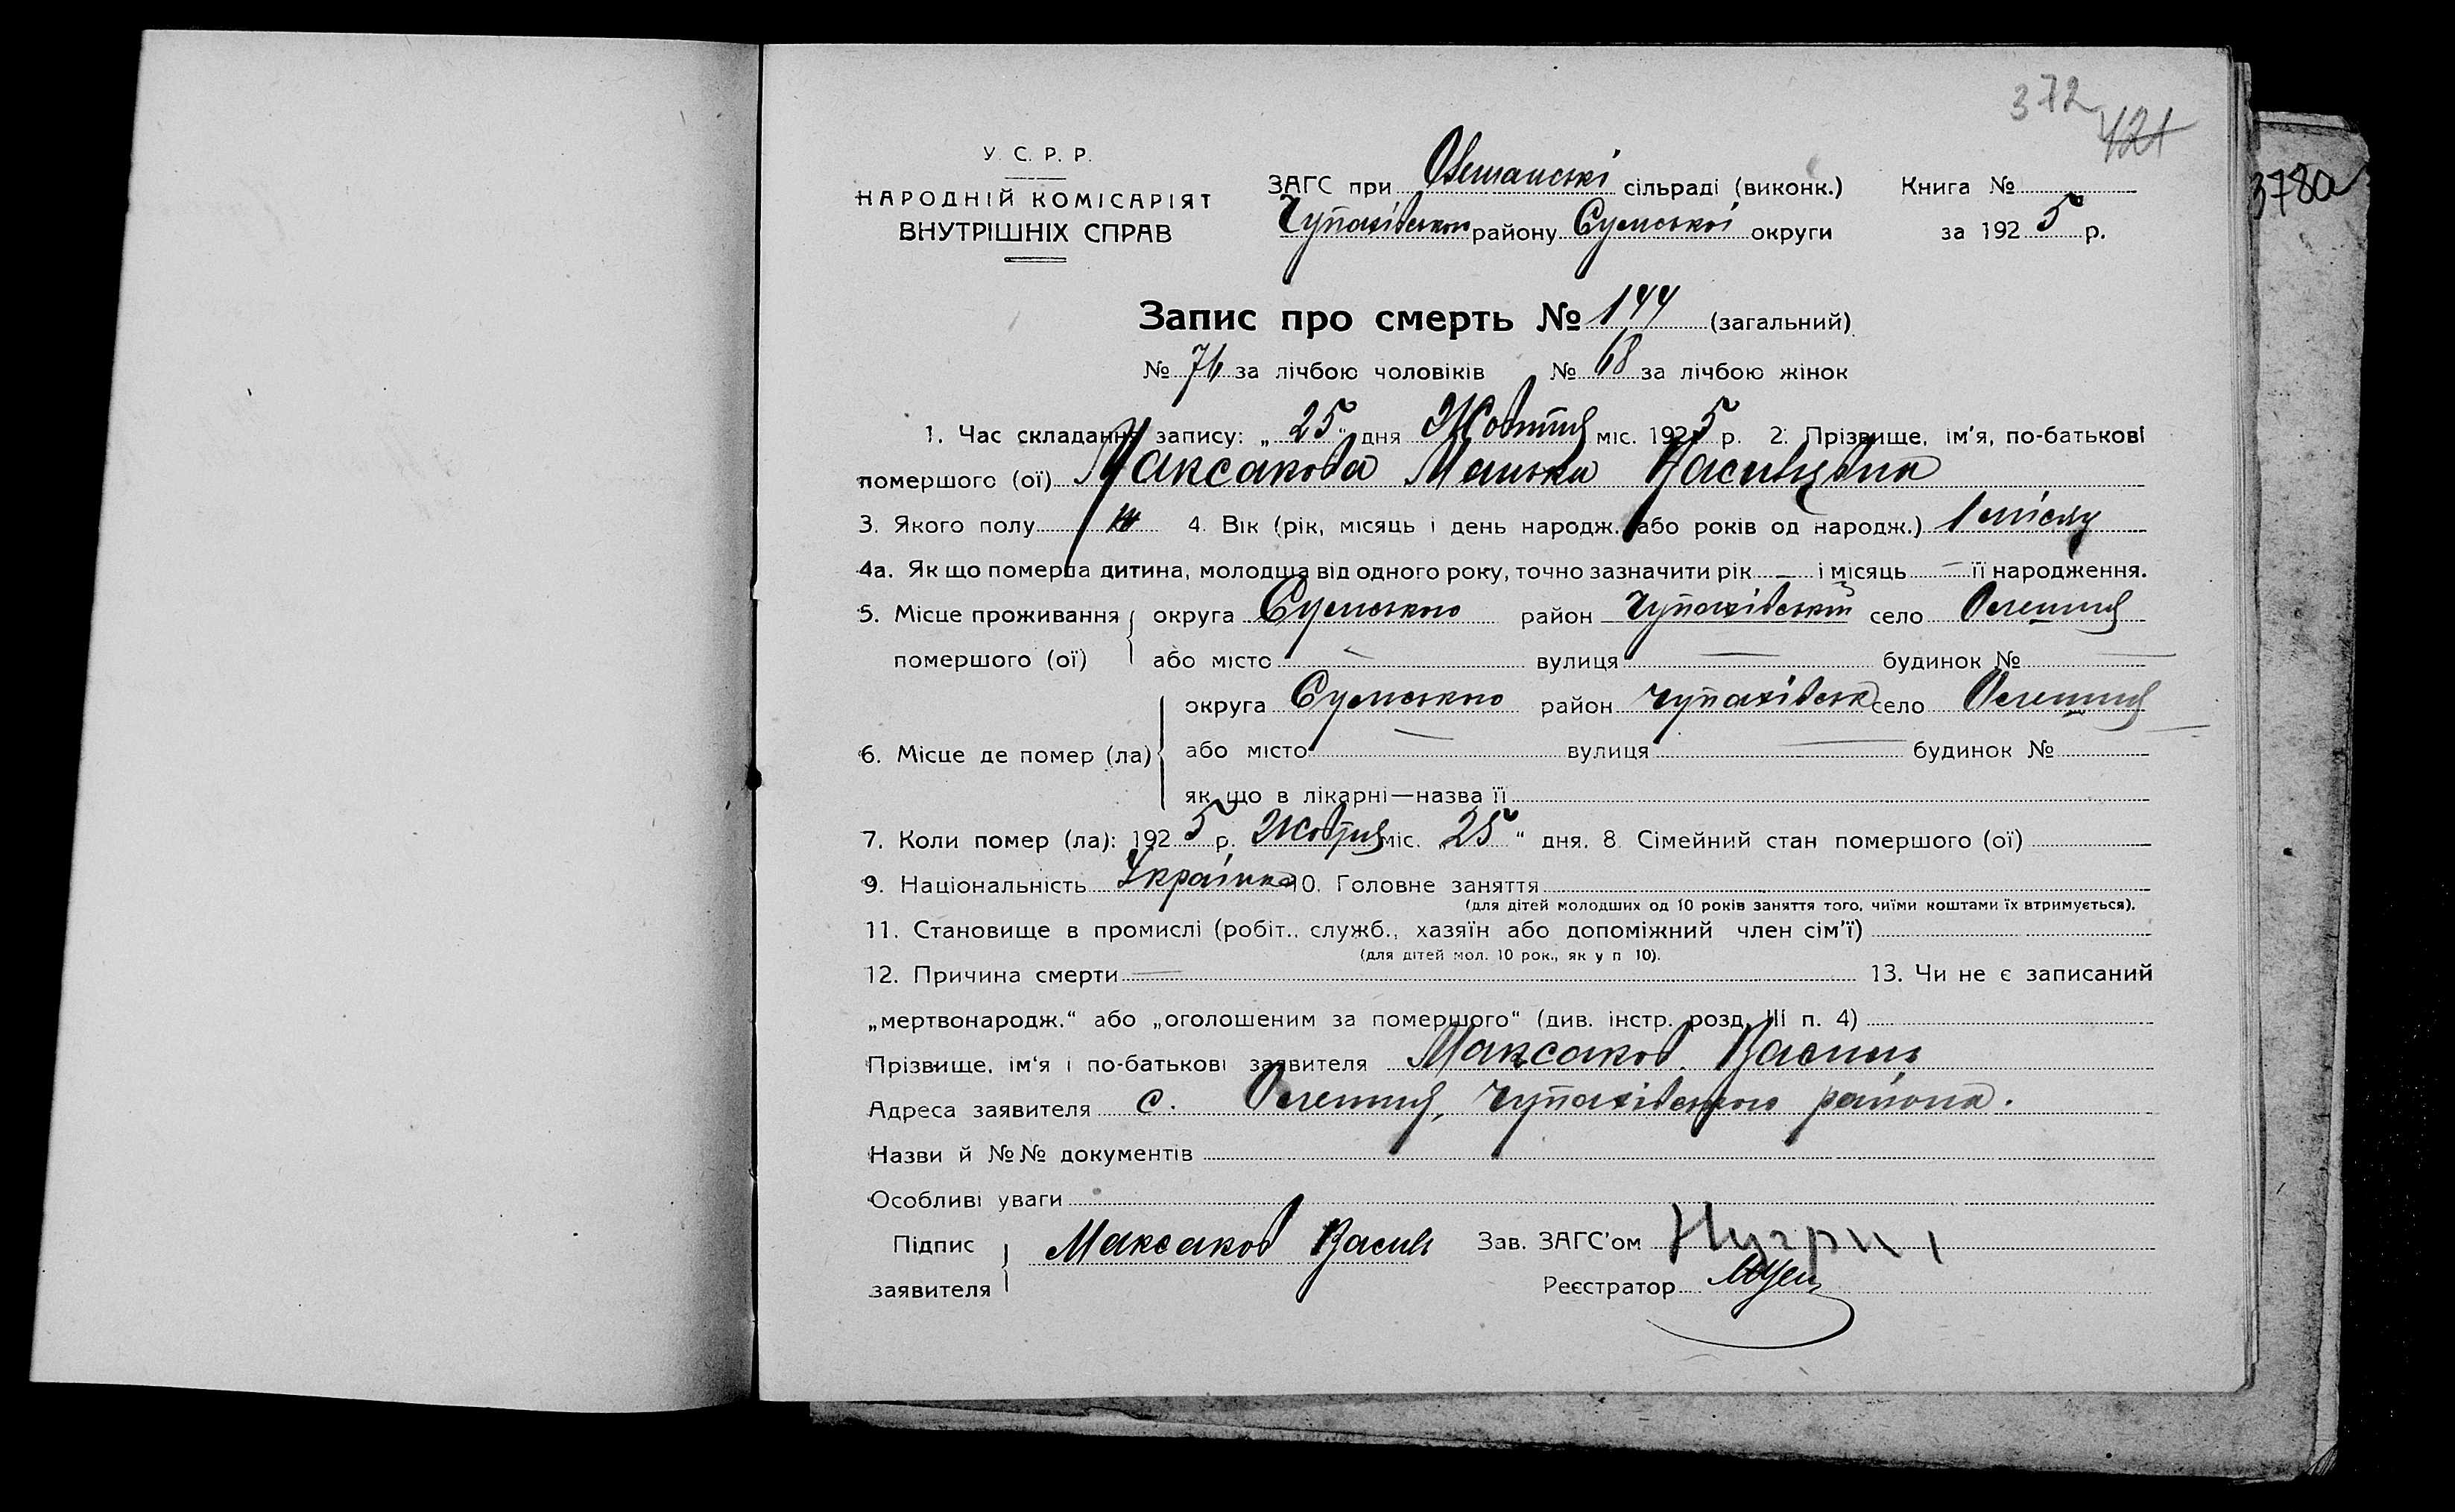 372
421
378а
У. С. Р. Р.
НАРОДНІЙ КОМІСАРІЯТ
ВНУТРІШНІХ СПРАВ
ЗАГС при сільраді (виконк.) Книга №
Чупахівського району Сумської округи за 1925 р.
Запис про смерть № 144 (загальний)
№ 76 за лічбою чоловіків № 68 за лічбою жінок
1. Час складання запису: „25“ дня Жовтня міс. 1925 р. 2. Прізвище, ім'я, по-батькові
помершого (ої) Максакова Манька Васильовна
3. Якого полу ж 4. Вік (рік, місяць і день народж. або років од народж.) 1 місяц
4а. Як що померла дитина, молодша від одного року, точно зазначити рік — і місяць — її народження.
5. Місце проживання округа Сумського район Чупахівський село Олешня
помершого (ої) або місто — вулиця — будинок № —
округа Сумського район Чупахівськ село Олешня
6. Місце де помер (ла) або місто — вулиця — будинок № —
як що в лікарні—назва її
7. Коли помер (ла): 1925 р. Жовтня міс. „25“ дня. 8. Сімейний стан помершого (ої)
9. Національність Українка 10. Головне заняття
(для дітей молодших од 10 років заняття того, чиїми коштами їх втримується).
11. Становище в промислі (робіт., служб., хазяїн або допоміжний член сім'ї)
(для дітей мол. 10 рок., як у п 10).
12. Причина смерти — 13. Чи не є записаний
„мертвонародж.“ або „оголошеним за помершого“ (див. інстр. розд. III п. 4)
Прізвище, ім'я і по-батькові заявителя Максаков Василь
Адреса заявителя с. Олешня, Чупахівського района.
Назви й №№ документів
Особливі уваги
Підпис Максаков Василь Зав. ЗАГС'ом
заявителя Реєстратор